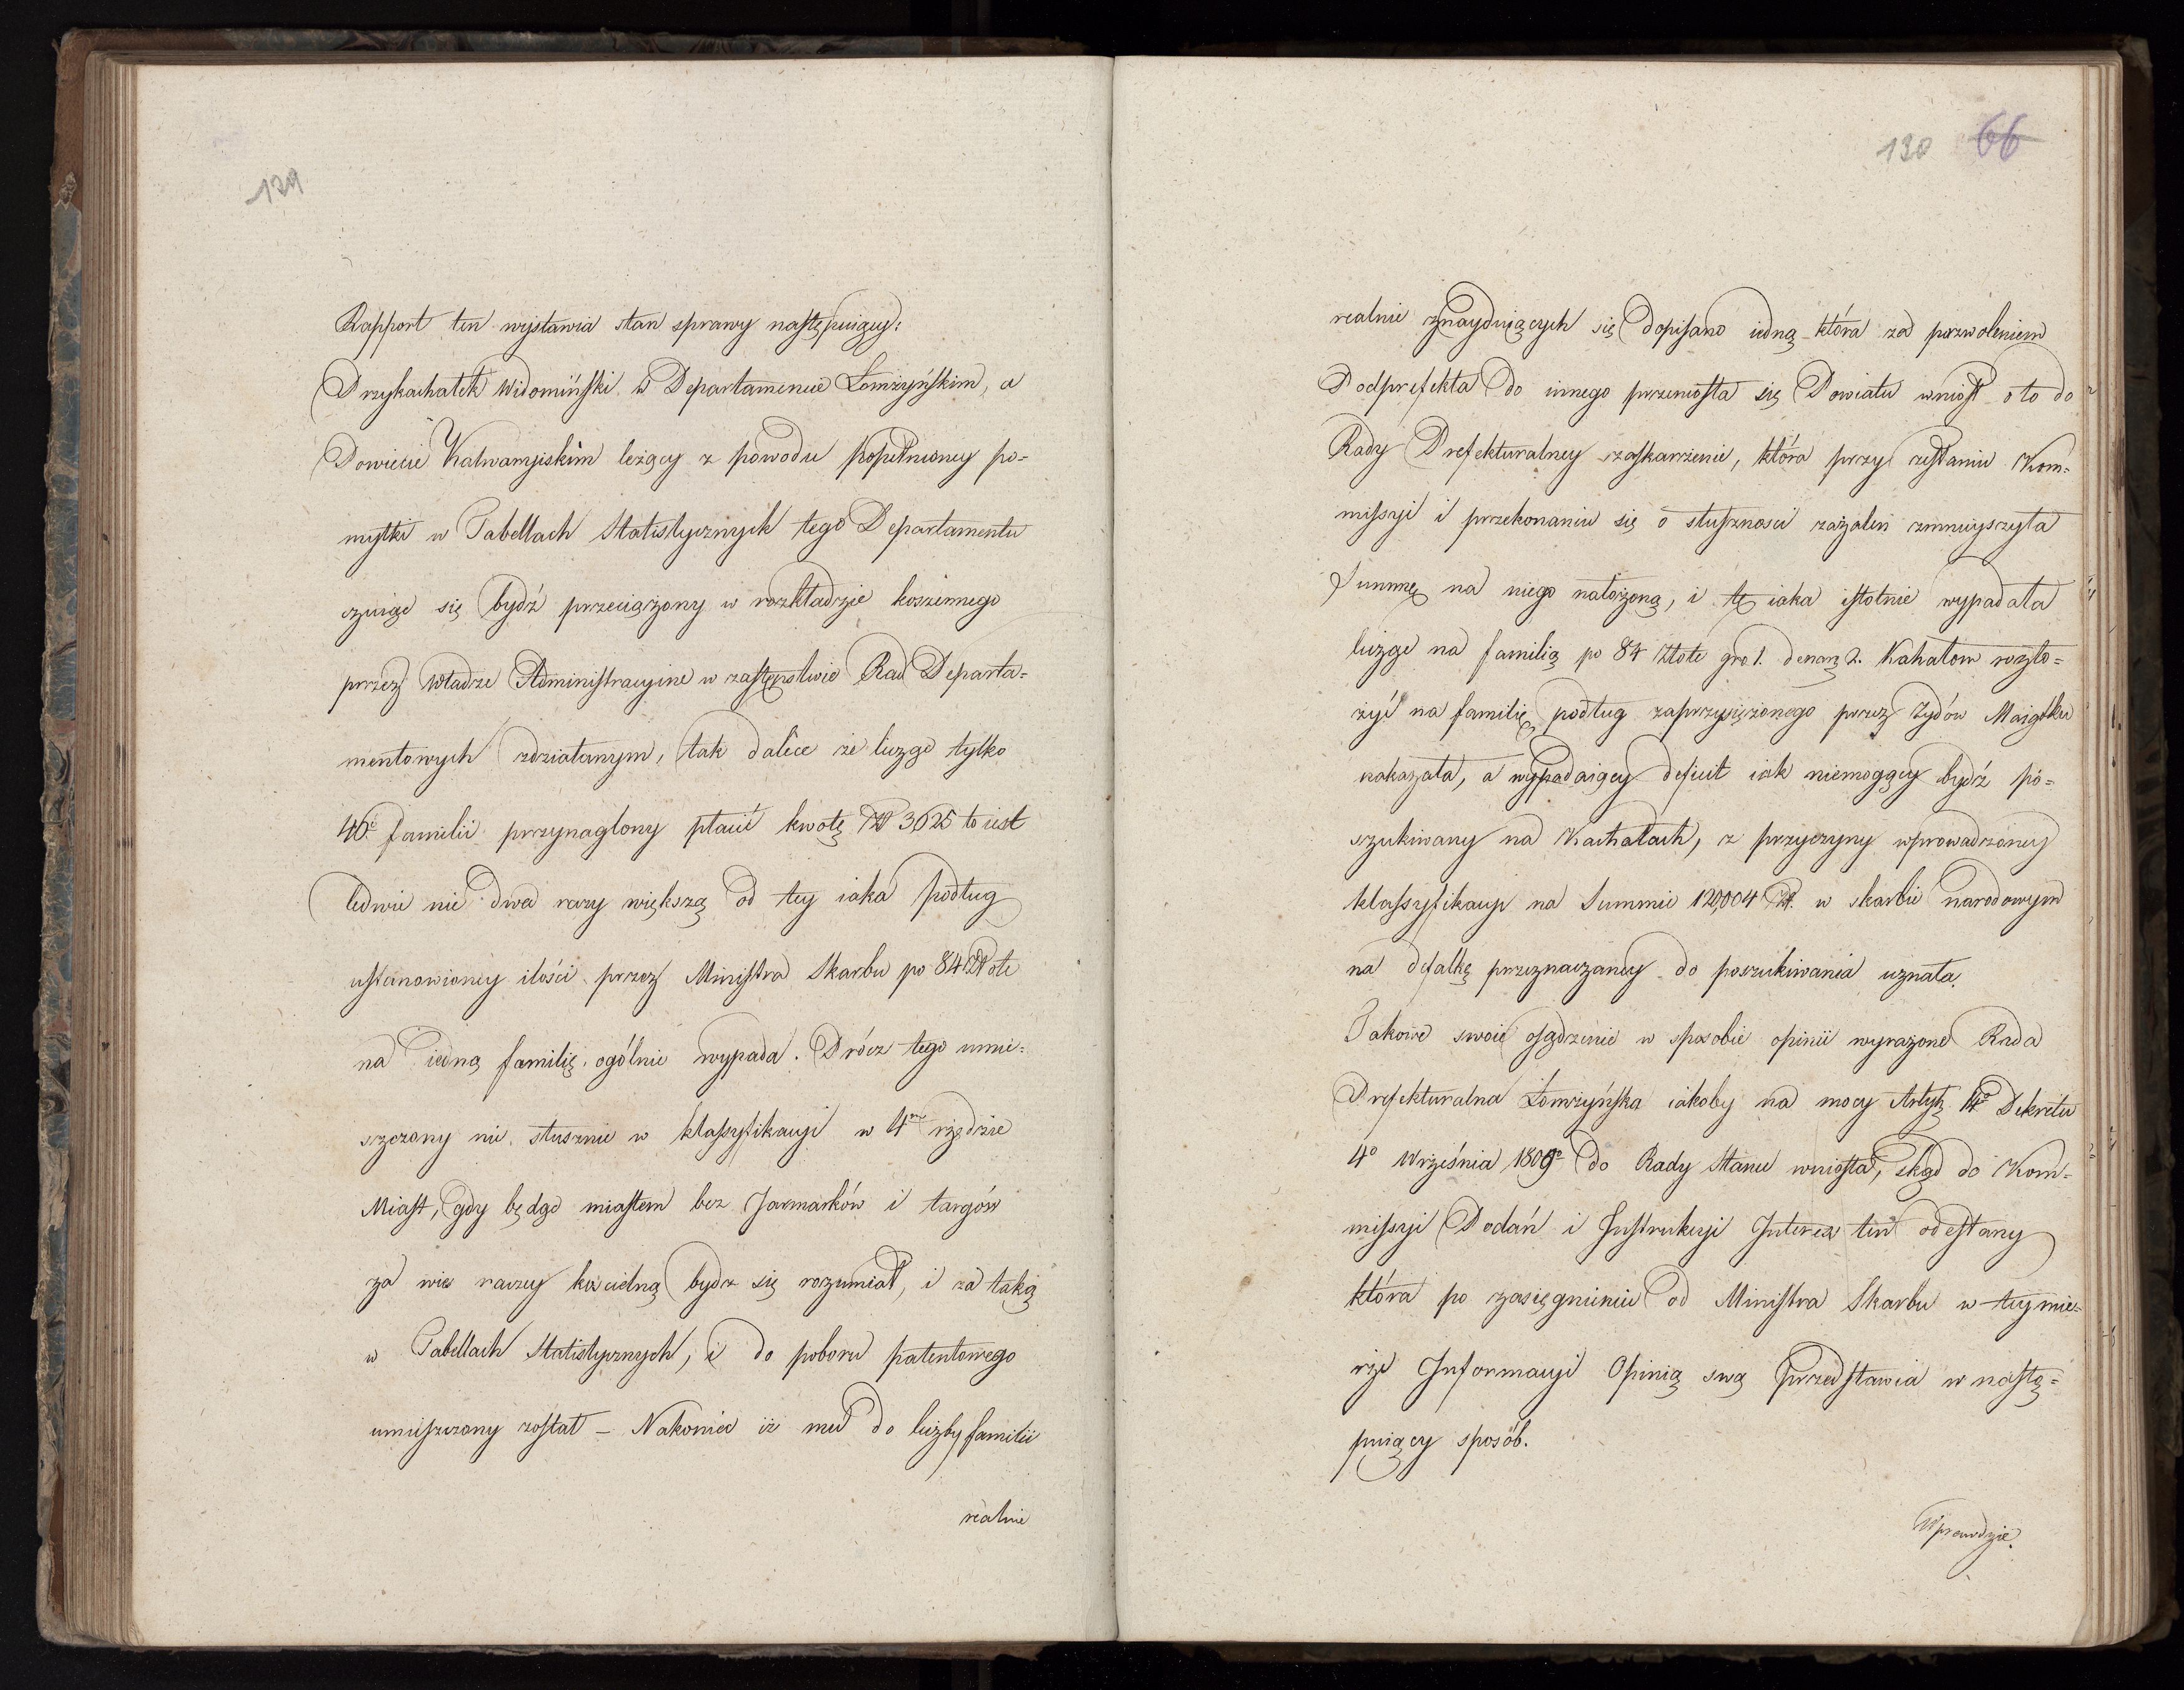 129
Rapport ten wystawia stan sprawy następuiący:
Przykachałek Widomiński w Departamencie Łomżyńskim, a
Powiecie Kalwaryiskim leżący z powodu popełnioney po-
myłki w Tabellach Statistycznych tego Departamentu
czuiąc się bydź przeciążony w rozkładzie koszernego
przez Władze Administracyine w zastępstwie Rad Departa-
mentowych zdziałanym, tak dalece że licząc tylko
46. familii przynaglony płacić kwotę Zł 3625 to iest
ledwie nie dwa razy większą od tey iaka podług
ustanowioney ilości przez Ministra Skarbu po 84 Złote
na iedną familię ogólnie wypada. Prócz tego umie-
szczony nie słusznie w klassyfikacyi w 4m rzędzie
Miast, gdy będąc miastem bez Jarmarków i targów
za wieś raczey kościelną bydz się rozumiał, i za taką
w Tabellach Statistycznych, i do poboru patentowego
umieszczony został – Nakoniec iż mu do liczby familii
realnie
130 66
realnie znayduiących się dopisano iedną która za pozwoleniem
Podprefekta do innego przeniosła się Powiatu wniosł o to do
Rady Prefekturalney zaskarżenie, która przy zesłaniu Kom-
missyi i przekonaniu się o słuszności zażaleń zmnieyszyła
Summę na niego nałożoną, i tę iaka istotnie wypadała
licząc na familią po 84 Złote gro 1. denar 2. Kahałom rozło-
żyć na familię podług zaprzysiężonego przez Żydów Maiątku
nakazała, a wypadaiący deficit iak niemogący bydź po-
szukiwany na Kachałach, z przyczyny wprowadzoney
klassyfikacyi na Summie 120,004 Zł. w skarbie narodowym
na defalkę przeznaczaney do poszukiwania uznała.
Takowe swoie osądzenie w sposobie opinii wyrażone Rada
Prefekturalna Łomżyńska iakoby na mocy Artyk 14o Dekretu
4o Września 1809o do Rady Stanu wniosła, skąd do Kom-
missyi Podań i Instrukcyi Interes ten odesłany
która po zasięgnieniu od Ministra Skarbu w tey mie-
rze Informacyi Opinią swą przedstawia w nastę-
puiący sposób.
Wprawdzie.